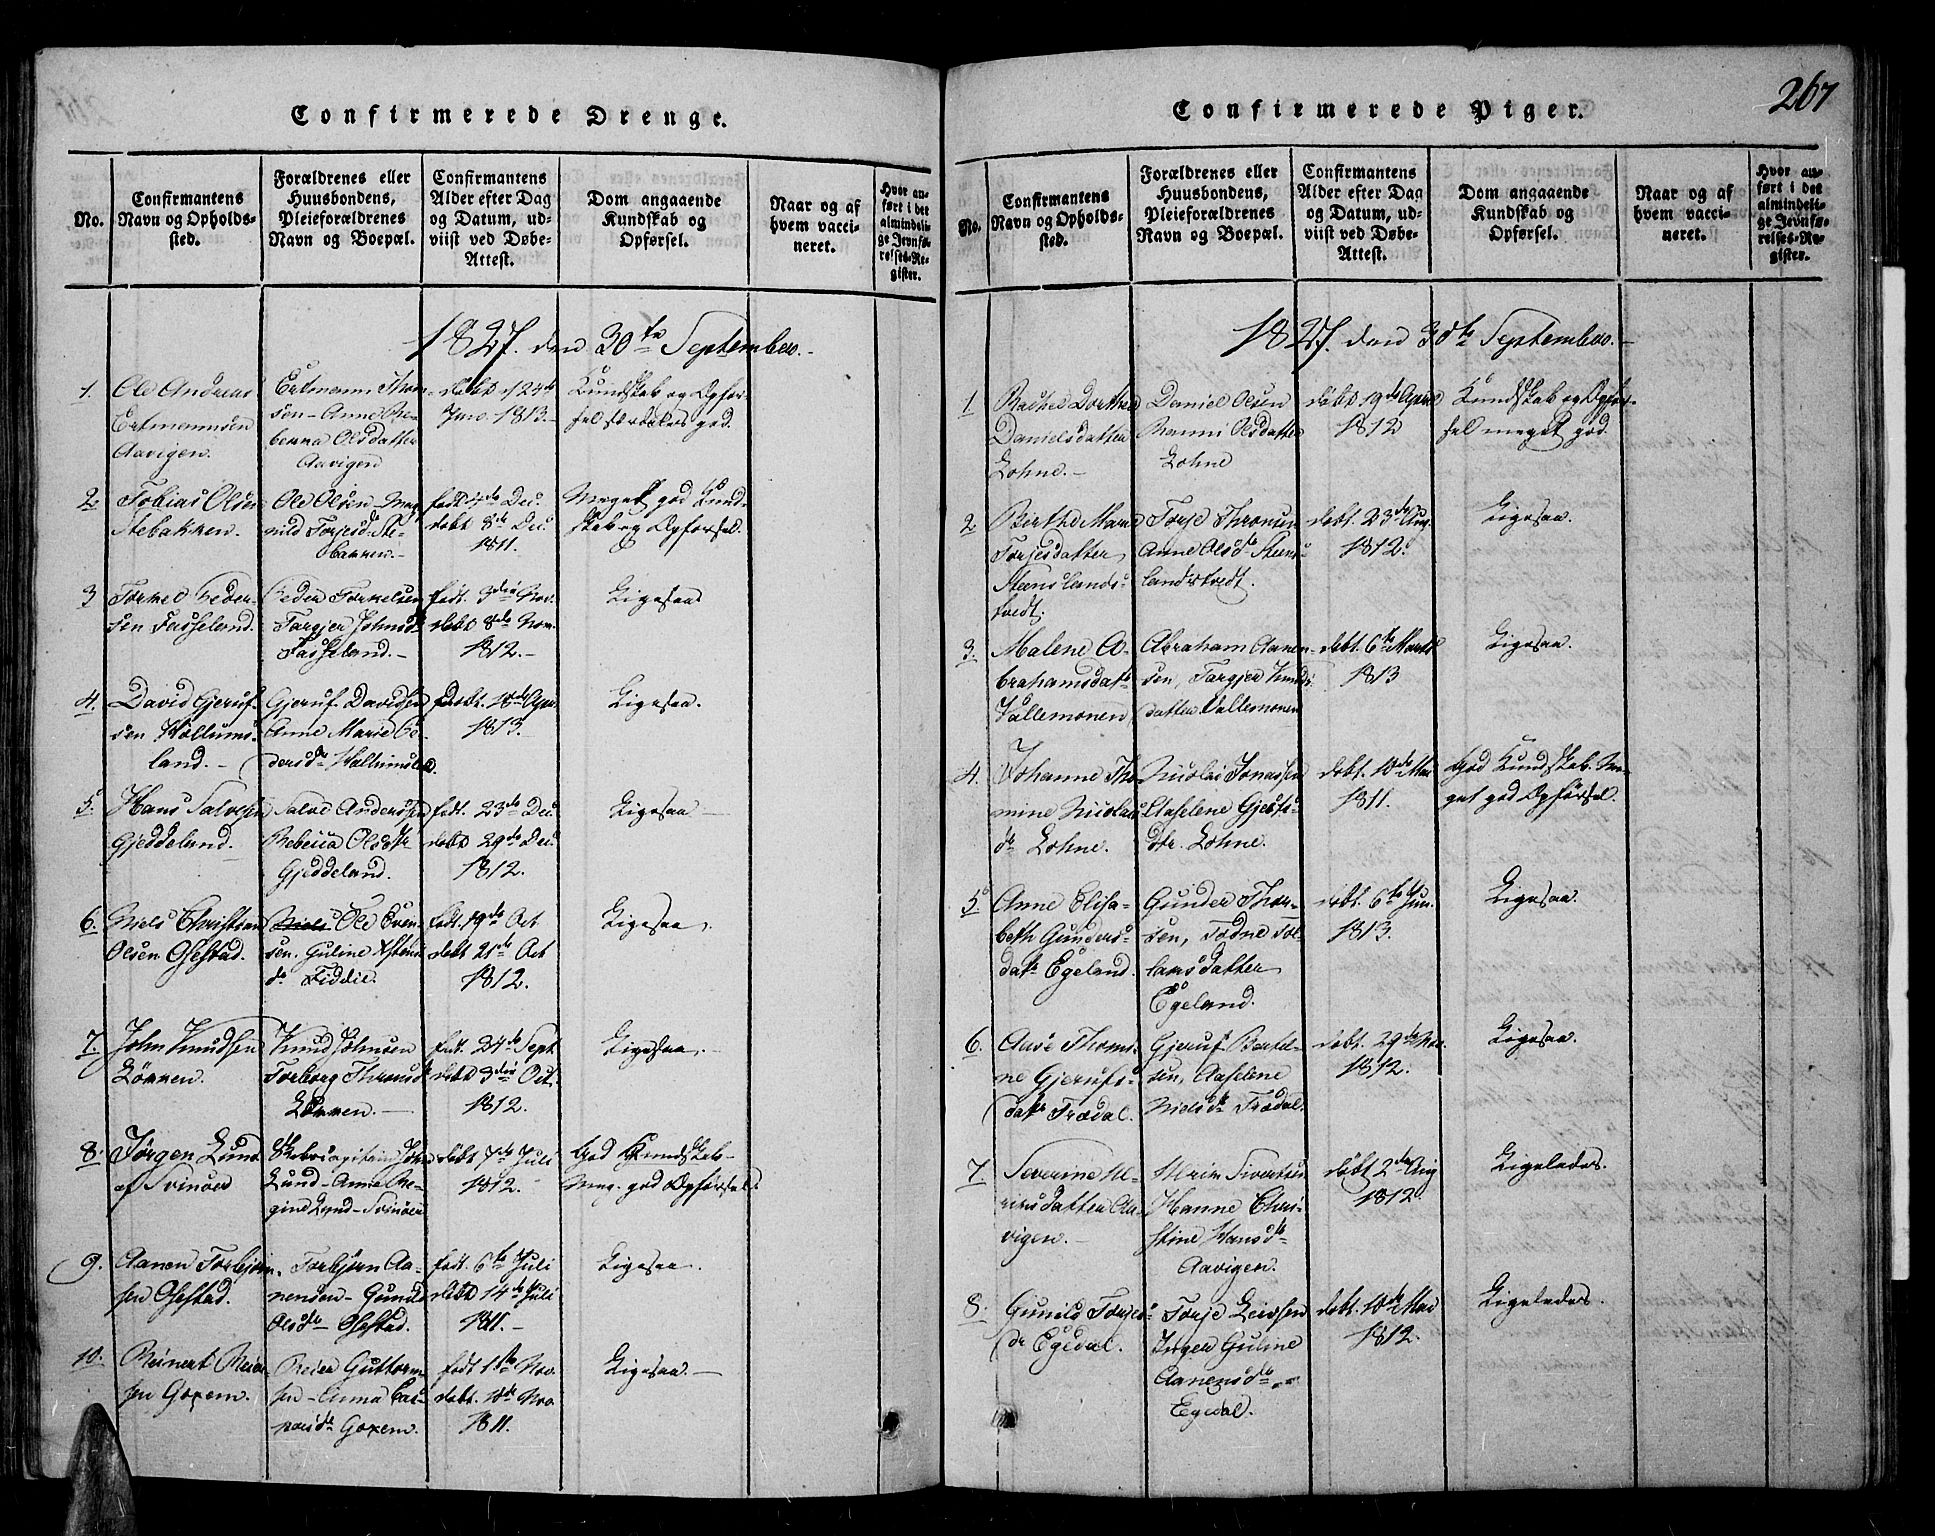 Confirmerede Drenge.
No.
Confirmantens
Navn og Opholds-
sted.
Forældrenes eller
Huusbondens,
Pleieforældrenes
Navn og Boepæl.
Confirmantens
Alder efter Dag
og Datum, ud-
viist ved Døbe-
Attest.
Dom angaaende
Kundskab og
Opførsel.
Naar og af
hvem vacci-
neret.
Hvor an-
ført i det
almindeli-
ge Jevnfø-
relses-Re-
gister.
1827. den 30te September.
1.
Ole Andreas
Ertmannsen
Aavigen.
Ertmann Thom-
sen - Anne Re-
bekka Olsdatter
Aavigen
døbt 24de
Juno. 1813.
Kundskab og Opfør-
sel særdeles god.
2.
Tobias Olsen
Stebakken.
Ole Olsen - Mag-
nild Torjesdr Ste-
bakken.-
født 4de Dec.
døbt 8de Dec.
1811.
Meget god Kund-
skab og Opførsel.
3
Torkel Peder-
sen Fasseland.
Peder Torkelsen
Targjer Johnsdr
Fasseland.-
født. 3die Nov.
døbt 8de Nov.
1812.-
Ligesaa
4.
David Gjeruf-
sen Høllums-
land.-
Gjeruf Davidsen
Anne Marie Pe-
dersdr Høllumsland.
døbt. 18de Apr.
1813.
Ligesaa.
5.
Hans Salvesen
Gjeddeland.
Salve Anderssen
Rebecca Olsdtr
Gjeddeland.
født. 23de Dec.
døbt 29de Dec.
1812.
Ligesaa -
6.
Niels Christian
Olsen Ousestad.
Niels Ole Even-
sen. Guline
dr Fiddie.
født. 19de Oct
døbt 21de Oct
1812.
Ligesaa.
7.
John Knudsen
Løkken.
Knud Johnsen
Torborg Thronsdr
Løkken.-
født. 24de Sept
døbt 3die Oct.
1812.
Ligesaa.-
8.
Jørgen Lund
af Svinøer
John
Lund - Anne Re-
gine Lund - Svinøer
døbt 7de Juli
1812.
God Kundskab-
Meg. god Opførsel.
9.
Aanen Torbjørn-
sen Ousestad.
Torbjørn Aa-
nensen - Gunild
Olsdr Ousestad.
født. 6te Juli
døbt 14de Juli
1811.-
Ligesaa.
10.
Reinert Reier-
sen Goxem.
Reier Guttorm-
sen - Anna Cas-
persdr Goxem.
født 1ste Nov.
døbt. 10de Nov.
1811.
Ligesaa.-
267
Confirmerede Piger.
No.
Confirmantens
Navn og Opholds-
sted.
Forældrenes eller
Huusbondens,
Pleieforældrenes
Navn og Boepæl.
Confirmantens
Alder efter Dag
og Datum, ud-
viist ved Døbe-
Attest.
Dom angaaende
Kundskab og
Opførsel.
Naar og af
hvem vacci-
neret.
Hvor an-
ført i det
almindeli-
ge Jevnfø-
relses-Re-
gister.
1827. den 30te September.-
1
Rachel Dorthea
Danielsdatter
Lohne.-
Daniel Olsen
Ranni Olsdatter
Lohne
døbt 19de April
1812
Kundskab og Opfør-
sel meget god.
2.
Berthe Marie
Torjesdatter
Steenslands-
kvedt.
Torje Thronsen
Anne Olsdr Steens-
landskvedt.
døbt. 23de Aug.
1812.
Ligesaa.
3.
Malene A-
brahamsdatr
Vallemonen
Abraham Aanen-
sen, Targjer Knuds-
datter Vallemonen
døbt. 6te Marts
1813
Ligesaa.
4.
Johanne Tho-
mine Nicolai
dr Lohne.
Nicolai Jonassen
Aaselene Gjerufs-
dtr. Lohne.
døbt. 10de Mai
1811.
God Kundskab. Me-
get god Opførsel.
5.
Anne Elisa-
beth Gunders-
datr Egeland.
Gunder Thor-
sen, Todne Tol-
lansdatter
Egeland.
døbt. 6te Jun.
1813.
Ligesaa.
6.
Aase Thomi-
ne Gjerufs-
datr Trædal.
Gjeruf Bertel-
sen, Aaselene
Nielsdr Trædal.
døbt. 29de Nov.
1812.
Ligesaa.
7.
Severine Me-
rinsdatter Aa-
vigen.-
Merin Sivertsen
Hanne Chri-
stine Hansdr
Aavigen.
døbt 2den Aug
1812.
Ligeledes.
8.
Gunild Torjes-
dr Egedal.
Torje Leidsen
Inger Guline
Aanensdr
Egedal.
døbt. 10de Mai
1812.
Ligeledes.